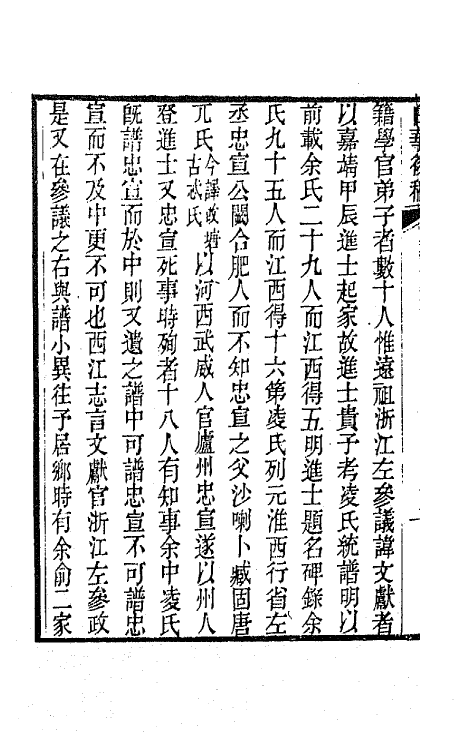 籍學官弟子者數十人惟遠祖浙江左參議諱文獻者
以嘉靖甲辰進士起家故進士貴子考凌氏統譜明以
前載余氏二十九人而江西得五明進士題名碑錄余
氏九十五人而江西得十六第凌氏列元淮西行省左
丞忠宣公闕合肥人而不知忠宣之父沙喇卜臧固唐
兀氏今譯改唐古忒氏以河西武威人官廬州忠宣遂以州人
登進士又忠宣死事時殉者十八人有知事余中凌氏
既譜忠宣而於中則又遺之譜中可譜忠宣不可譜忠
宣而不及中更不可也西江志言文獻官浙江左參政
是又在參議之右與譜小異往予居鄉時有余俞二家